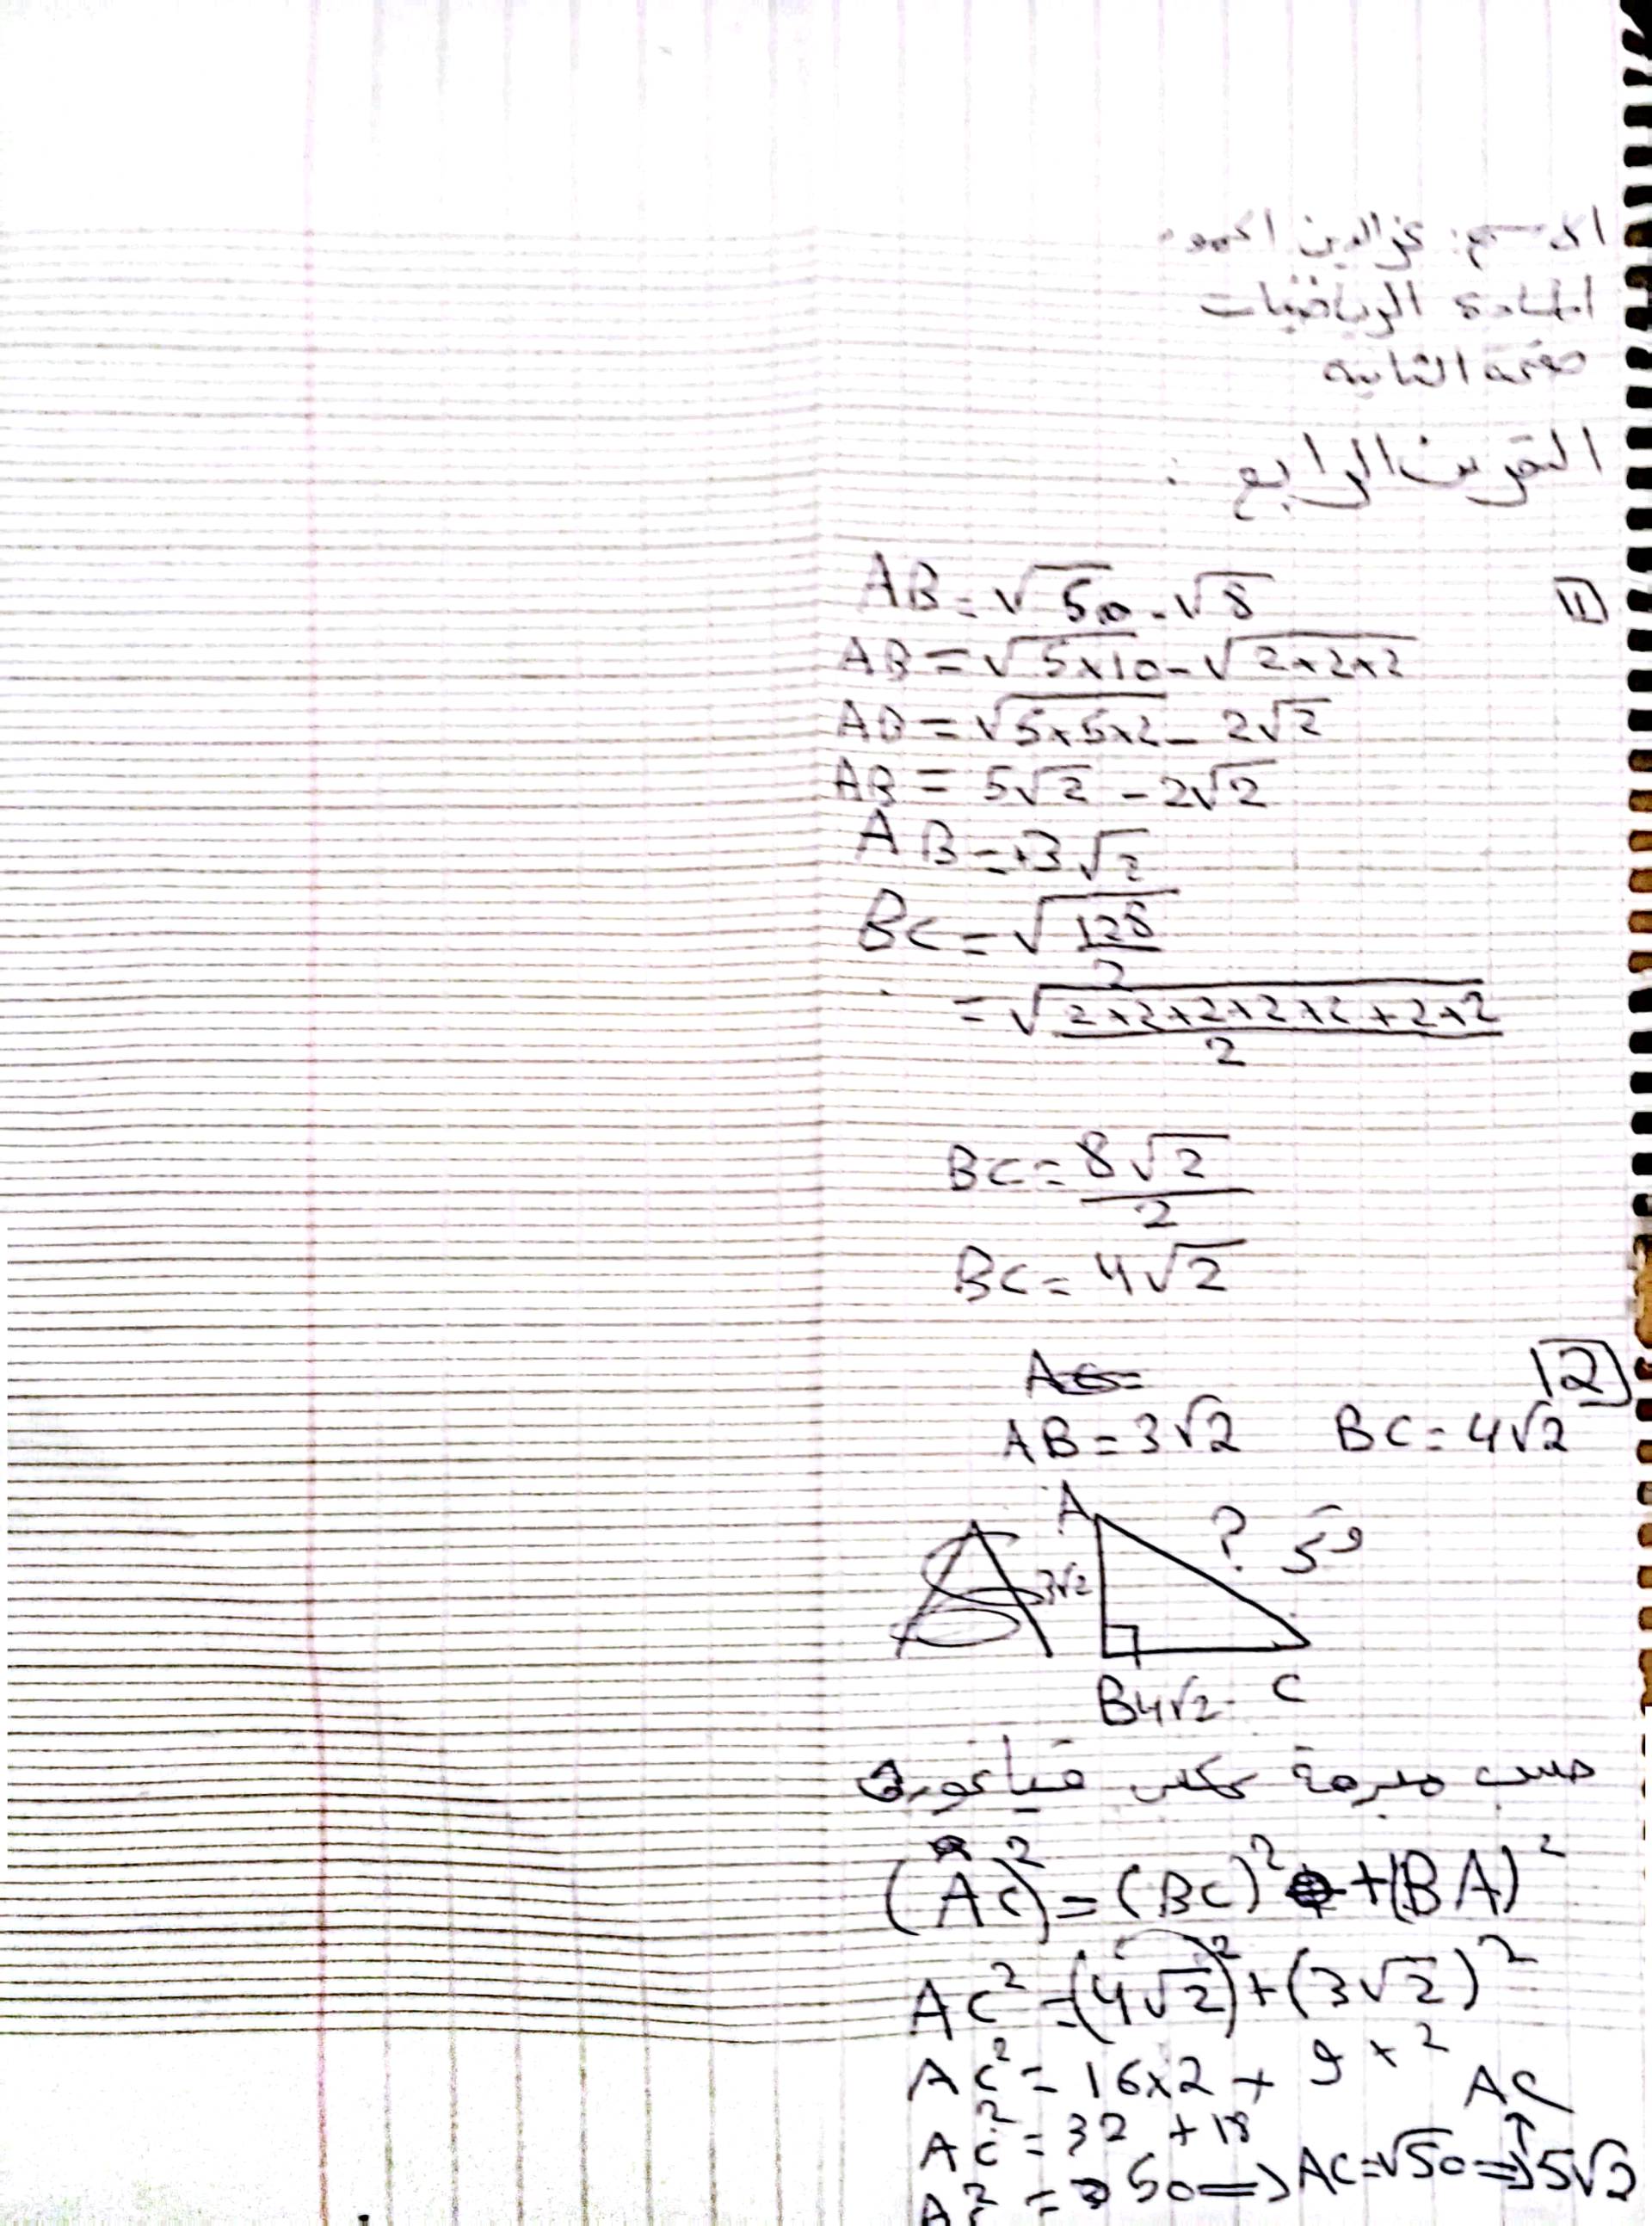 الاسم: عز الدين احمد
المادة الرياضيات
صفحة الثانية
التمرين الرابع :
1
AB = √50 - √8
AB = √5×10 - √2×2×2
AB = √5×5×2 - 2√2
AB = 5√2 - 2√2
AB = 3√2
BC = √128/2
= √2×2×2×2×2×2×2/2
BC = 8√2/2
BC = 4√2
2
AB = 3√2 BC = 4√2
A
? 59
3√2
B 4√2 C
حسب مبرهنة عكس فيثاغورث
(AC)² = (BC)² + (BA)²
AC² = (4√2)² + (3√2)²
AC² = 16×2 + 9×2
AC² = 32 + 18
A² = 50 => AC = √50 => 5√2
AC